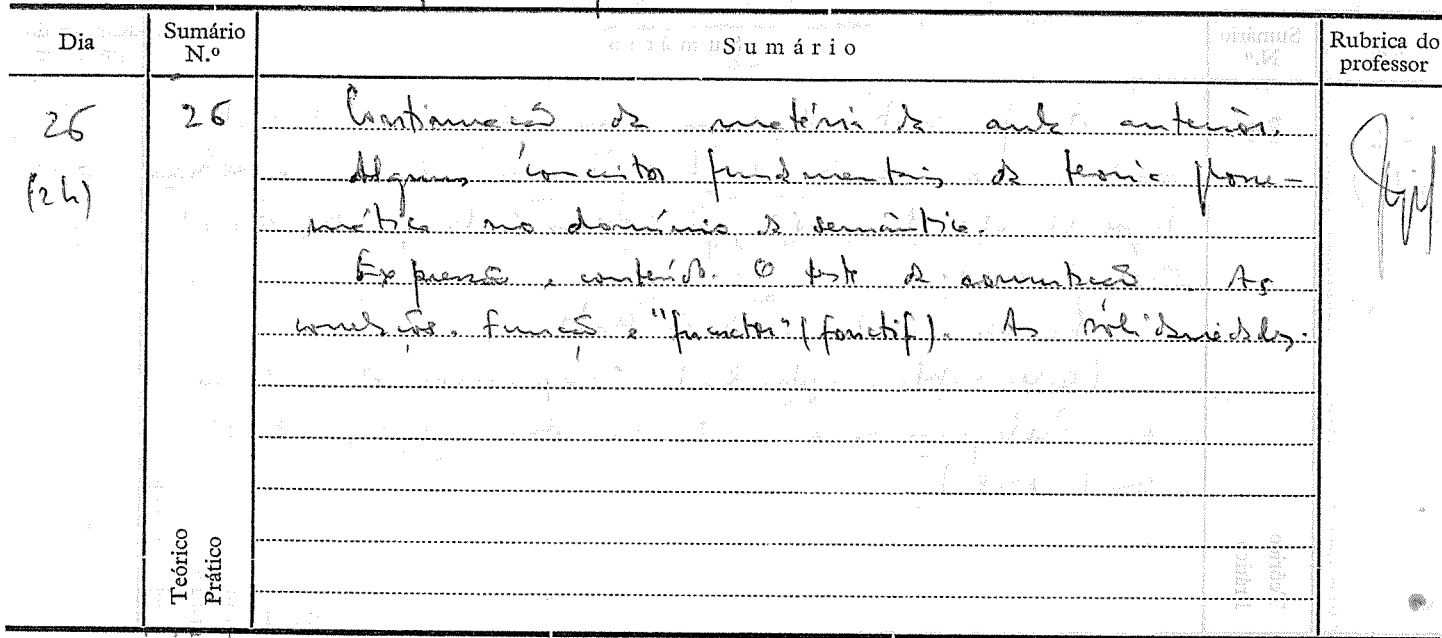 Dia Sumário N.º Sumário Rubrica do professor
26 26 Continuação da matéria da aula anterior.
(2h) Alguns conceitos fundamentais da teoria glosse-
mática no domínio da semântica.
Expressão e conteúdo. O teste da comutação. As
conexões. Função e "functor" (fonctif). As solidariedades.
Teórico
Prático